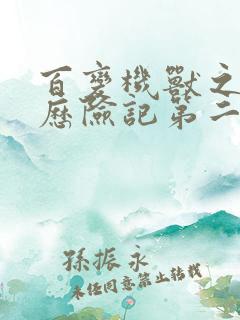 百變機獸之
歷險記第二
孫振永
未經同意禁止轉載